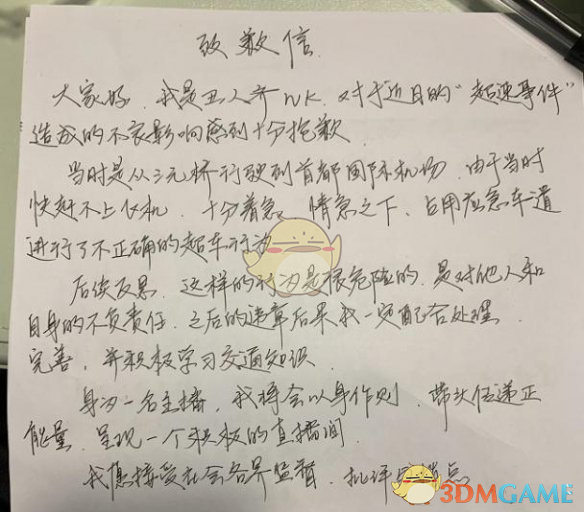 致歉信
大家好，我是丑人齐NK，对于近日的“超速事件”
造成的不良影响感到十分抱歉
当时是从三元桥行驶到首都国际机场，由于当时
快赶不上飞机，十分着急，情急之下，占用应急车道
进行了不正确的超车行为
后续反思，这样的行为是很危险的，是对他人和
自身的不负责任，之后的违章后果我一定配合处理，
完善，并积极学习交通知识
身为一名主播，我将会以身作则，带头传递正
能量，呈现一个积极的直播间
我愿接受社会各界监督，批评
3DMGAME